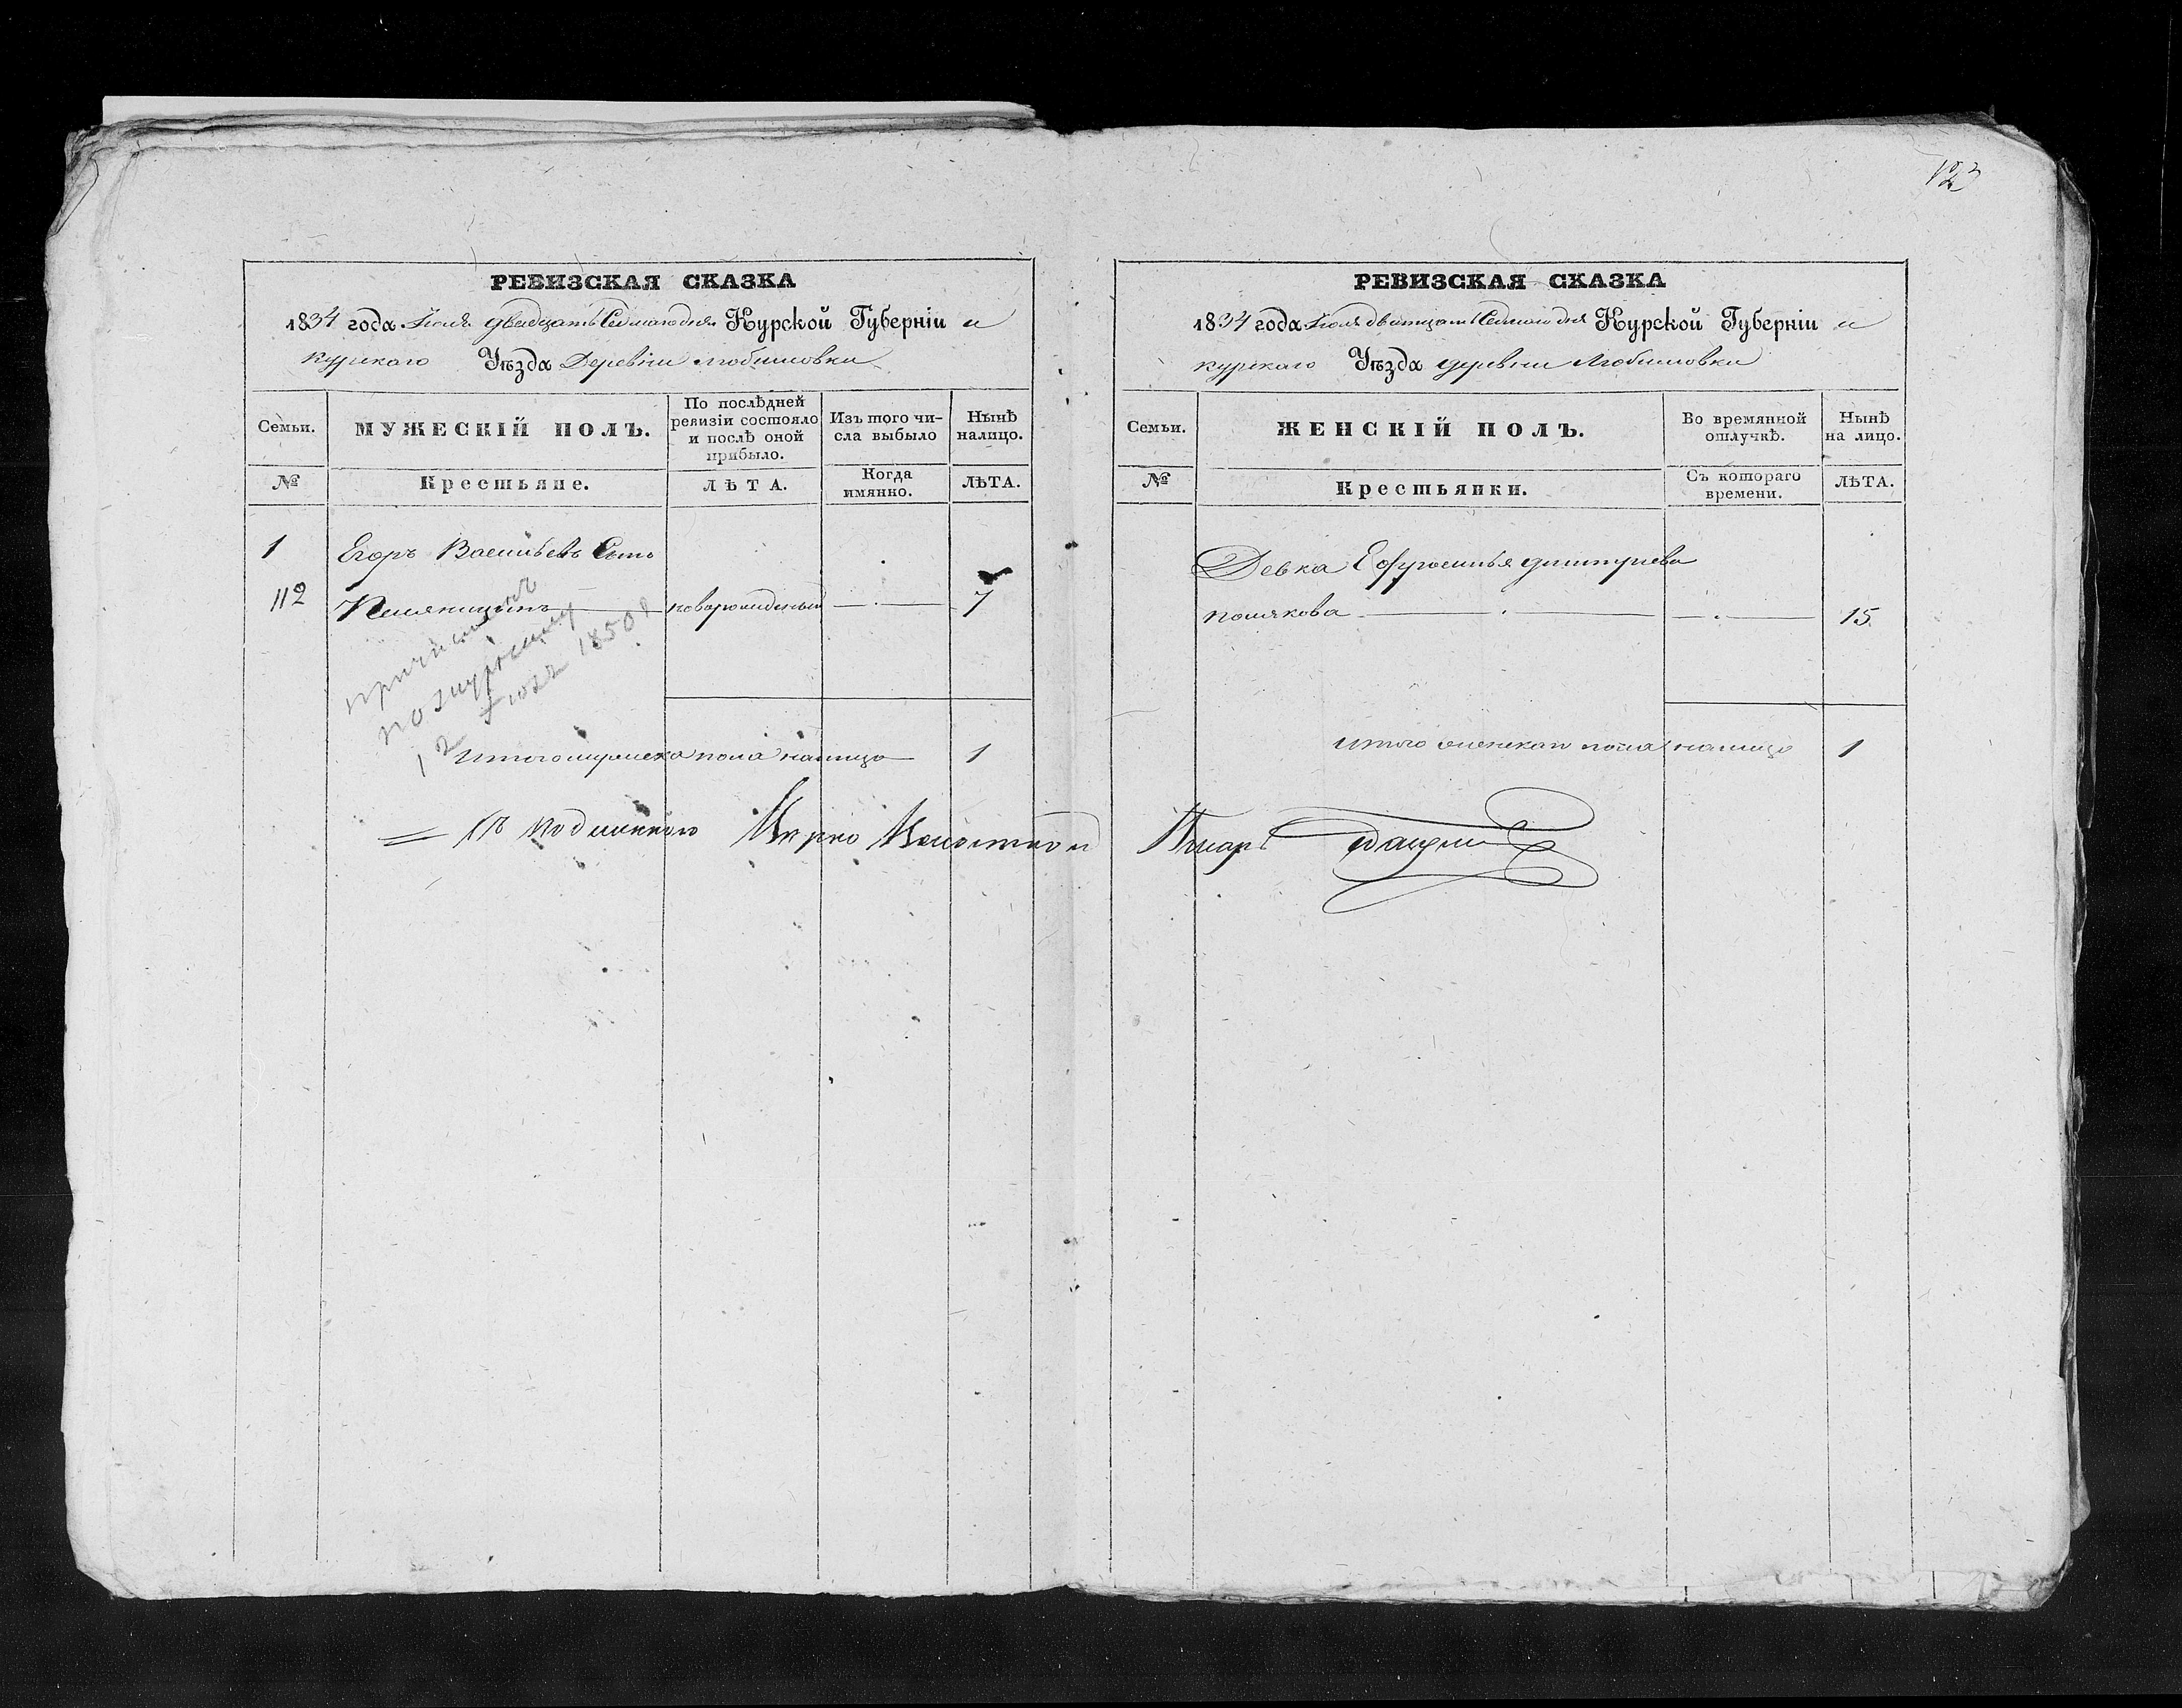 123
РЕВИЗСКАЯ СКАЗКА
1834 года Июля двадцать Седьмаго дня Курской Губерніи и
курскаго Уѣзда Деревни Любимовки
Семьи.
МУЖЕСКІЙ ПОЛЪ.
По послѣдней ревизіи состояло и послѣ оной прибыло.
Изъ того числа выбыло
Нынѣ налицо.
№
Крестьяне.
ЛѢТА.
Когда имянно.
ЛѢТА.
1
Егоръ Васильевъ Сынъ
112
новорожденный
7
причисленъ
1850
Итого мужеска пола налицо 1
РЕВИЗСКАЯ СКАЗКА
1834 года Июля дватцать Седьмаго дня Курской Губерніи и
курскаго Уѣзда деревни Любимовки
Семьи.
ЖЕНСКІЙ ПОЛЪ.
Во времянной отлучкѣ.
Нынѣ на лицо.
№
Крестьянки.
Съ котораго времени.
ЛѢТА.
Девка Ефросинья дмитриева
полякова 15
Итого женскаго пола налицо 1
Съ подлиннымъ Верно Волостной Писарь